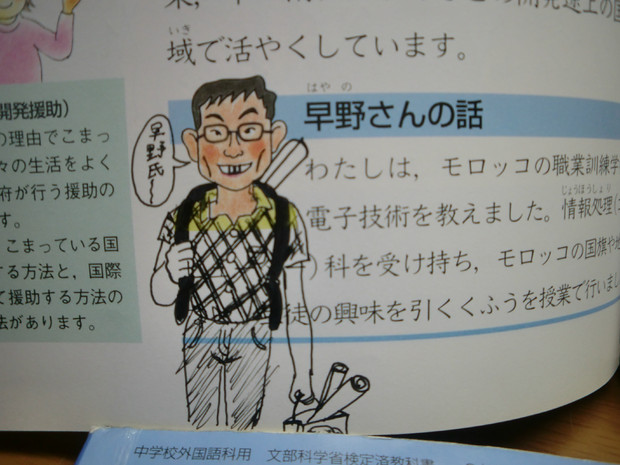 域で活やくしています。
いき
開発援助）
の理由でこまっ
々の生活をよく
府が行う援助の
す。
こまっている国
する方法と，国際
て援助する方法の
法があります。
早野氏～
はや の
早野さんの話
わたしは，モロッコの職業訓練学
電子技術を教えました。情報処理
じょうほうしょり
）科を受け持ち，モロッコの国旗や地
徒の興味を引くくふうを授業で行いまし
中学校外国語科用 文部科学省検定済教科書